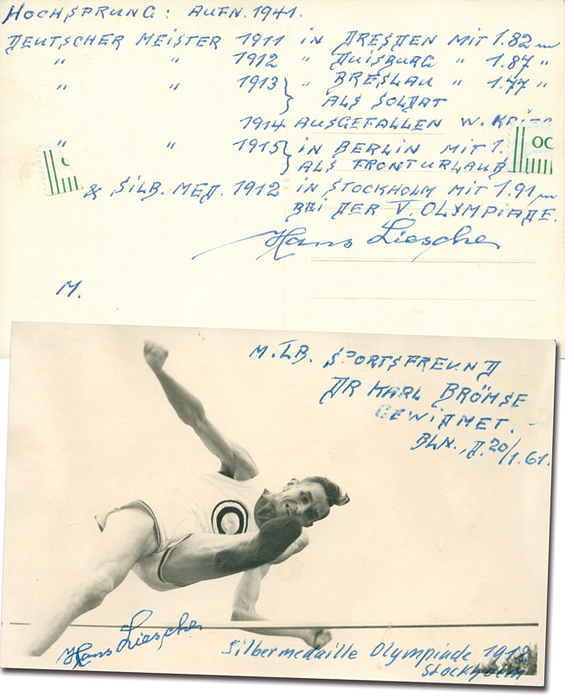 HOCHSPRUNG: AUFN. 1941.
DEUTSCHER MEISTER 1911 IN DRESDEN MIT 1.82 m
" " 1912 " DUISBURG " 1.87 "
" " 1913 " BRESLAU " 1.77 "
ALS SOLDAT
1914 AUSGEFALLEN W.
" " 1915 IN BERLIN MIT 1.
ALS FRONTURLAUB
& SILB. MED. 1912 IN STOCKHOLM MIT 1.91 m
BEI DER V. OLYMPIADE.
Hans Liesche
M.
M. LB. SPORTSFREUND
DR KARL BRÖMSE
GEWIDMET.-
BLN., D. 20/1.61.
Hans Liesche
Silbermedaille Olympiade 1912
Stockholm